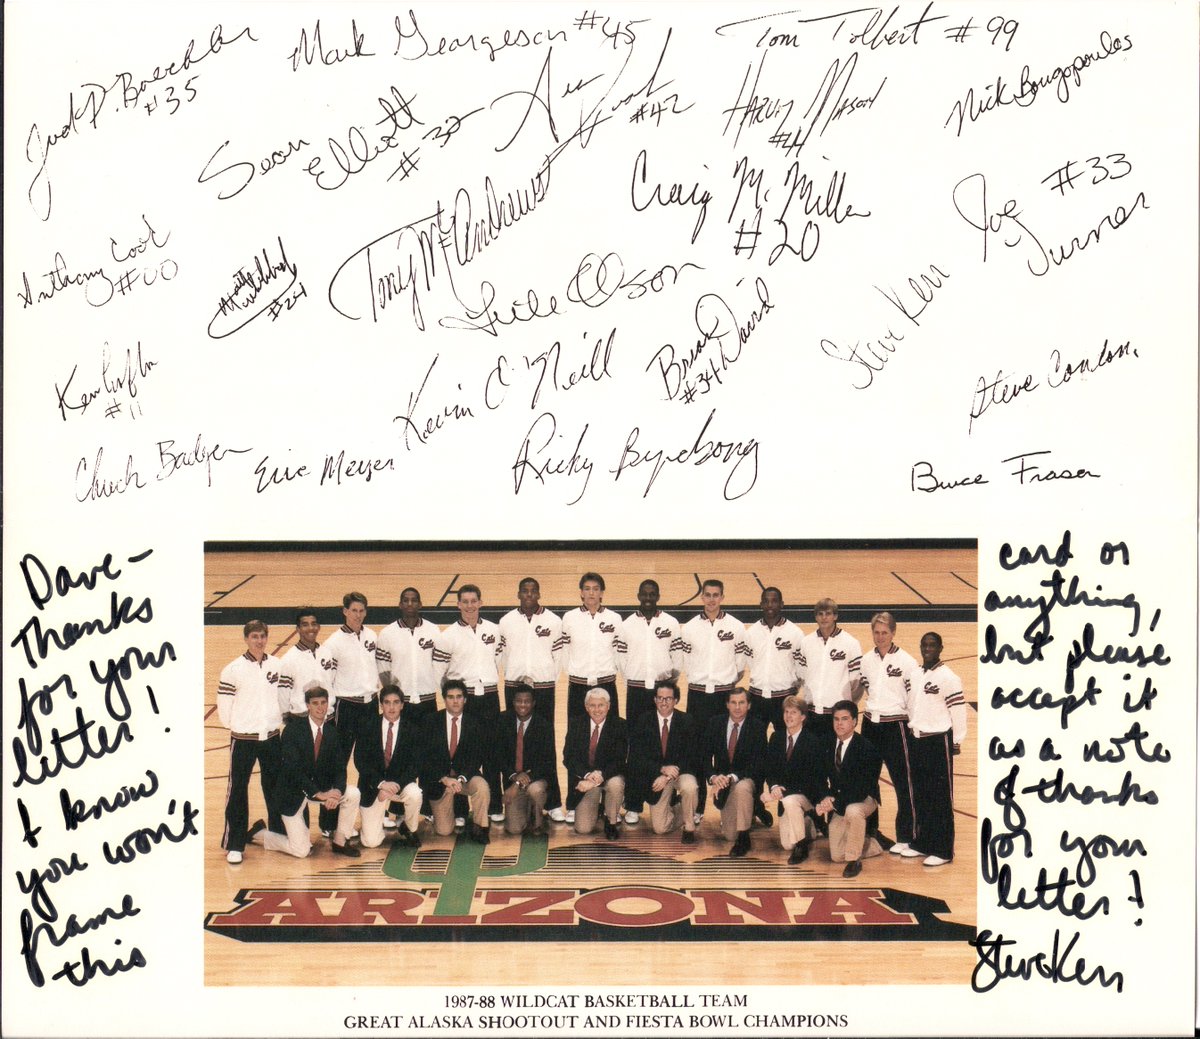 Jud P. Buechler
#35
Mark Georgeson #45
Tom Tolbert #99
Sean
Elliott
#32
#42
Harvey Mason
#44
Nick Bougopoulos
Craig McMillan
#20
Joe #33
Turner
Anthony Cook
#00
#24
Tony McAndrews
Lute Olson
Brian David
#34
Steve Kerr
Kevin O'Neill
Ken Lofton
#11
Steve Condon
Chuck Badger
Eric Meyer
Ricky Byrdsong
Bruce Fraser
Dave-
Thanks
for your
letter!
I know
you won't
frame
this
card or
anything,
but please
accept it
as a note
of thanks
for your
letter!
Steve Kerr
Cats
ARIZONA
1987-88 WILDCAT BASKETBALL TEAM
GREAT ALASKA SHOOTOUT AND FIESTA BOWL CHAMPIONS